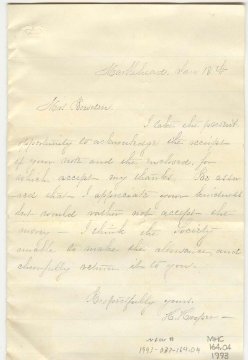 Marblehead, Jan 18th
Mrs Bowden
I take the present
opportunity to acknowledge the receipt
of your note and the enclosed, for
which accept my thanks. Be assu
red that I appreciate your kindness
but would rather not accept the
money - I think the Society
unable to make the allowance and
cheerfully return it to you.
Respectfully yours.
H. Hooper
MHC
164.04
1993
1993-027-164.04